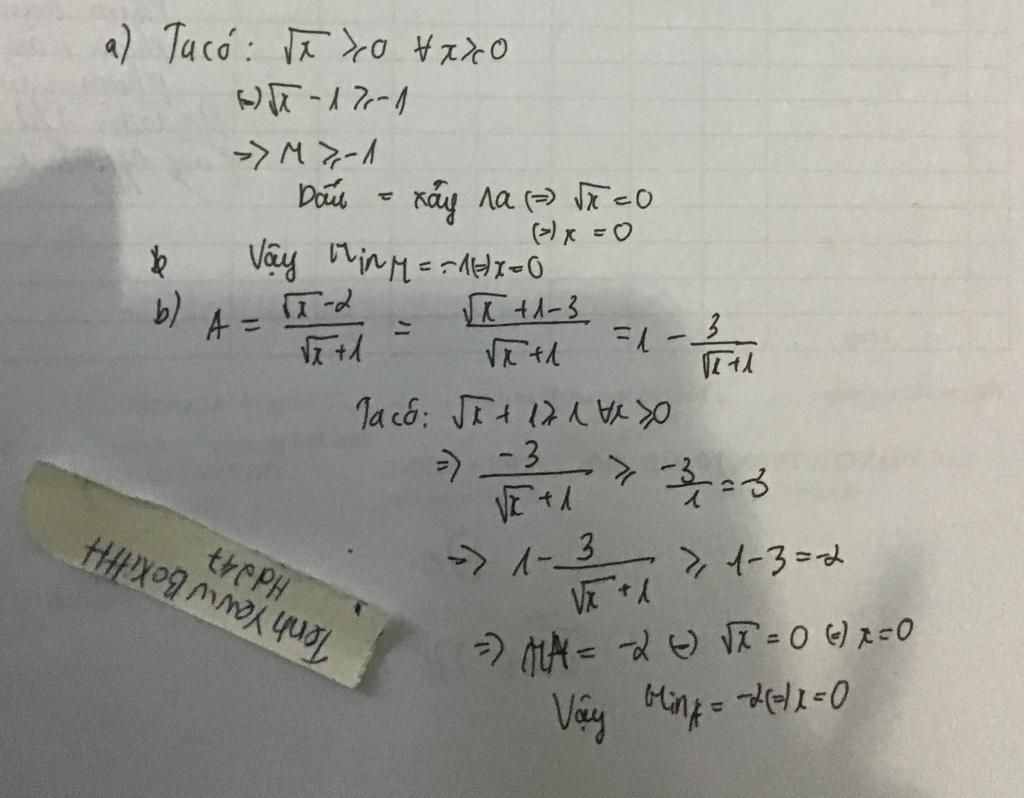 a) Ta có: √x ⩾ 0 ∀x ⩾ 0
(=) √x - 1 ⩾ -1
=> M ⩾ -1
Dấu = xảy ra (=> √x = 0
(=) x = 0
Vậy Min M = -1 (=) x = 0
b) A = (√x - 2)/(√x + 1) = (√x + 1 - 3)/(√x + 1) = 1 - 3/(√x + 1)
Ta có: √x + 1 ⩾ 1 ∀x ⩾ 0
=> -3/(√x + 1) ⩾ -3/1 = -3
=> 1 - 3/(√x + 1) ⩾ 1 - 3 = -2
=> A = -2 (=) √x = 0 (=) x = 0
Vậy Min A = -2 (=) x = 0
Hd247